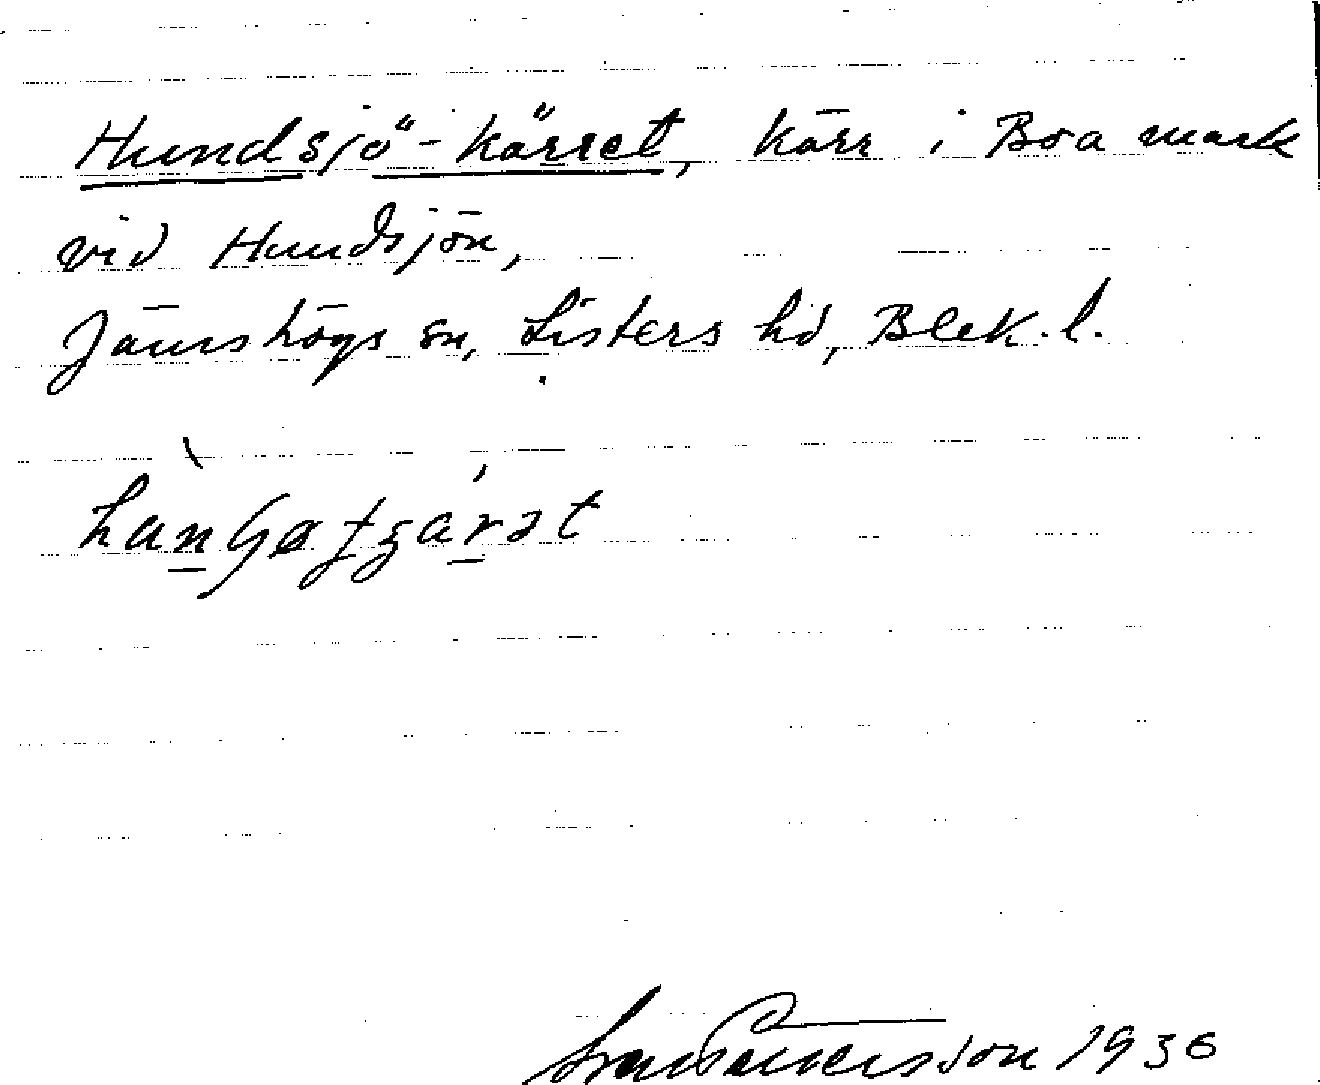 Hundsjö-kärret, kärr i Boa mark
vid Hundsjön,
Jämshögs sn, Listers hd, Blek. l.
Sven Petersson 1936